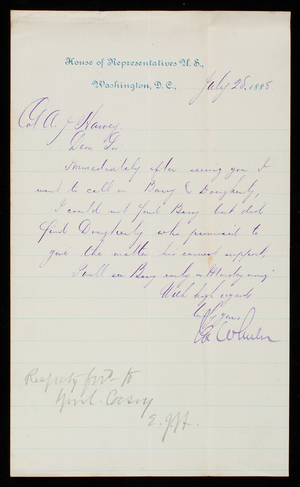 House of Representatives U. S.,
Washington, D. C.,
July 25, 1888
Col A. J. Harvey
Dear Sir
Immediately after seeing you I
went to call on Barry & Dougherty,
I could not find Barry but did
find Dougherty who promised to
give the matter his earnest support.
I will see Barry early on Monday morning
With high regards
Truly yours,
Jos Wheeler
Respectfy for'd to
Genl. Casey